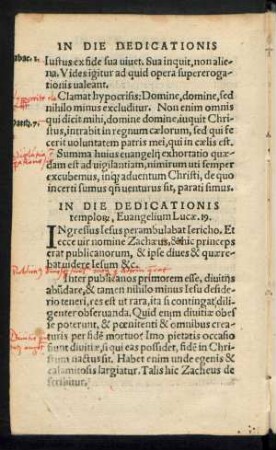 IN DIE DEDICATIONIS
Iustus ex fide sua uiuet. Sua inquit, non alie
na. Vides igitur ad quid opera supereroga-
tionis ualeant.
Clamat hypocrisis: Domine, domine, sed
nihilo minus excluditur. Non enim omnis
qui dicit mihi, domine domine, iuquit Chri-
stus, intrabit in regnum cælorum, sed qui fe
cerit uoluntatem patris mei, qui in cælis est.
Summa huius euangelij exhortatio quæ-
dam est ad uigilantiam, nimirum uti semper
excubemus, inq; aduentum Christi, de quo
incerti sumus qñ uenturus sit, parati simus.
IN DIE DEDICATIONIS
templorꝝ, Euangelium Lucæ. 19.
INgressus Iesus perambulabat Iericho. Et
ecce uir nomine Zachæus, & hic princeps
erat publicanorum, & ipse diues & quære-
bat uidere Iesum &c.
Inter publicanos primorem esse, diuitijs
abūdare, & tamen nihilo minus Iesu deside-
rio teneri, res est ut rara, ita si contingat, dili-
genter obseruanda. Quid enim diuitiæ obes
se poterunt, & pœnitenti & omnibus creatu
ris per fidē mortuo? Imo pietatis occasio
fiunt diuitiæ, si qui eas possidet, fidē in Chri-
stum nactus sit. Habet enim unde egenis &
calamitosis largiatur. Talis hic Zacheus de
scribitur.